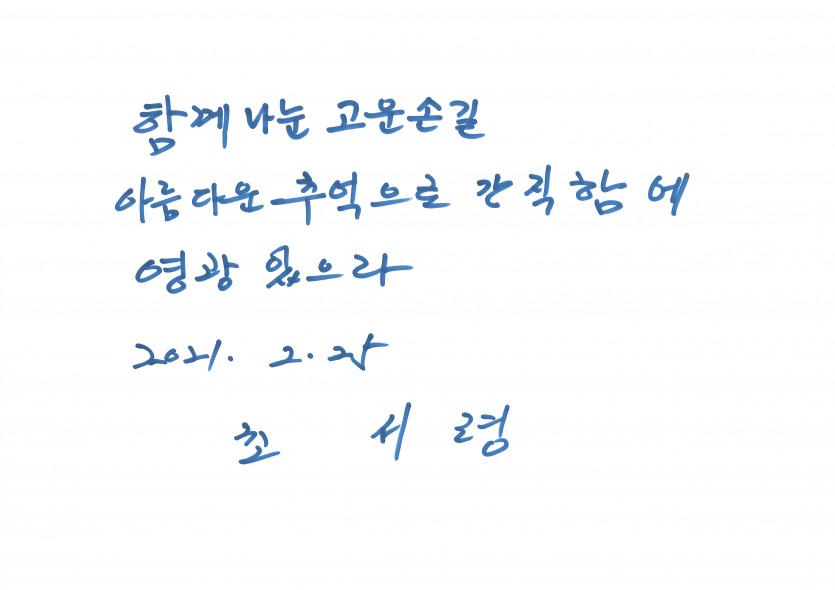 함께 나눈 고문손길
아름다운 추억으로 간직함에
영광 있으라
2021. 2. 25
최 서 령